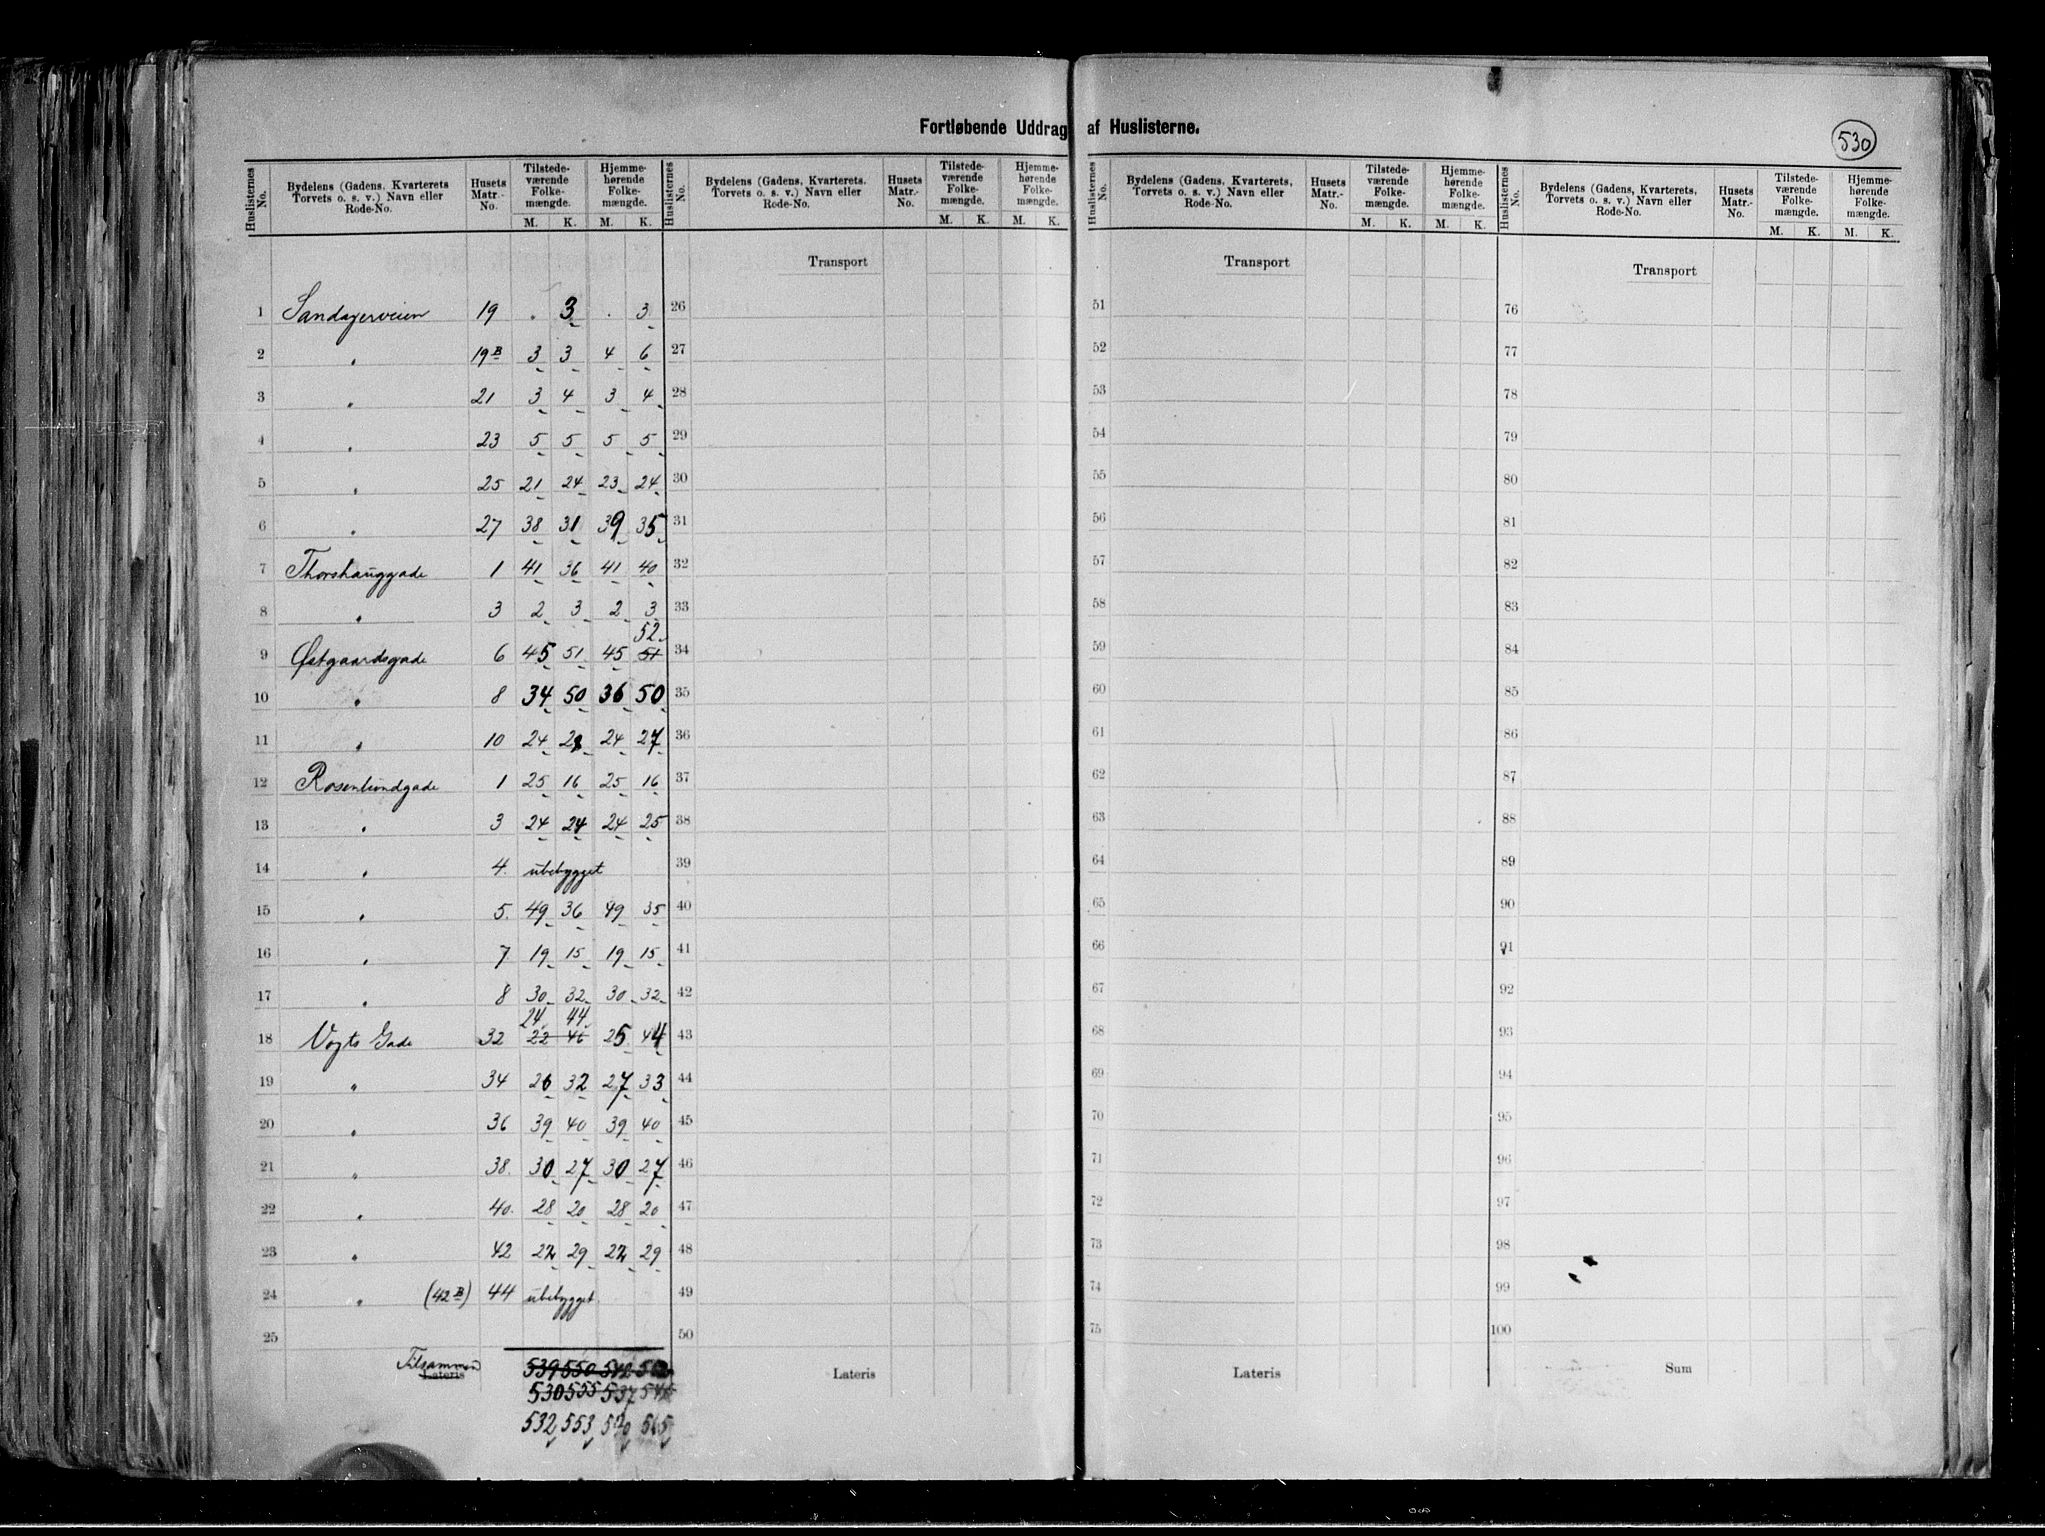 Fortløbende Uddrag af Huslisterne.
530
Huslisternes No. | Bydelens (Gadens, Kvarterets Torvets o. s. v.) Navn eller Rode-No. | Husets Matr.-No. | Tilstede-værende Folke-mængde. M. K. | Hjemme-hørende Folke-mængde. M. K.
Huslisternes No. | Bydelens (Gadens, Kvarterets, Torvets o. s. v.) Navn eller Rode-No. | Husets Matr.-No. | Tilstede-værende Folke-mængde. M. K. | Hjemme-hørende Folke-mængde. M. K.
Huslisternes No. | Bydelens (Gadens, Kvarterets, Torvets o. s. v.) Navn eller Rode-No. | Husets Matr.-No. | Tilstede-værende Folke-mængde. M. K. | Hjemme-hørende Folke-mængde. M. K.
Huslisternes No. | Bydelens (Gadens, Kvarterets, Torvets o. s. v.) Navn eller Rode-No. | Husets Matr.-No. | Tilstede-værende Folke-mængde. M. K. | Hjemme-hørende Folke-mængde. M. K.
Transport Transport Transport
1 Sandagerveien 19 . 3 . 3
2 " 19B 3 3 4 6
3 " 21 3 4 3 4
4 " 23 5 5 5 5
5 " 25 21 24 23 24
6 " 27 38 31 39 35
7 Thorshauggade 1 41 36 41 40
8 " 3 2 3 2 3
52
9 Østgaardsgade 6 45 51 45 51
10 " 8 34 50 36 50
11 " 10 24 28 24 27
12 Rosenlundgade 1 25 16 25 16
13 " 3 24 24 24 25
14 " 4. ubebygget
15 " 5. 49 36 49 35
16 " 7 19 15 19 15
17 " 8 30 32 30 32
24 44
18 Vogts Gade 32 22 46 25 44
19 " 34 26 32 27 33
20 " 36 39 40 39 40
21 " 38. 30 27 30 27
22 " 40. 28 20 28 20
23 " 42 22 29 22 29
24 " (42B) 44 ubebygget
25
Tilsammen
Lateris 539 550
530 555 537
532 553 540 565
26
27
28
29
30
31
32
33
34
35
36
37
38
39
40
41
42
43
44
45
46
47
48
49
50
Lateris
51
52
53
54
55
56
57
58
59
60
61
62
63
64
65
66
67
68
69
70
71
72
73
74
75
Lateris
76
77
78
79
80
81
82
83
84
85
86
87
88
89
90
91
92
93
94
95
96
97
98
99
100
Sum